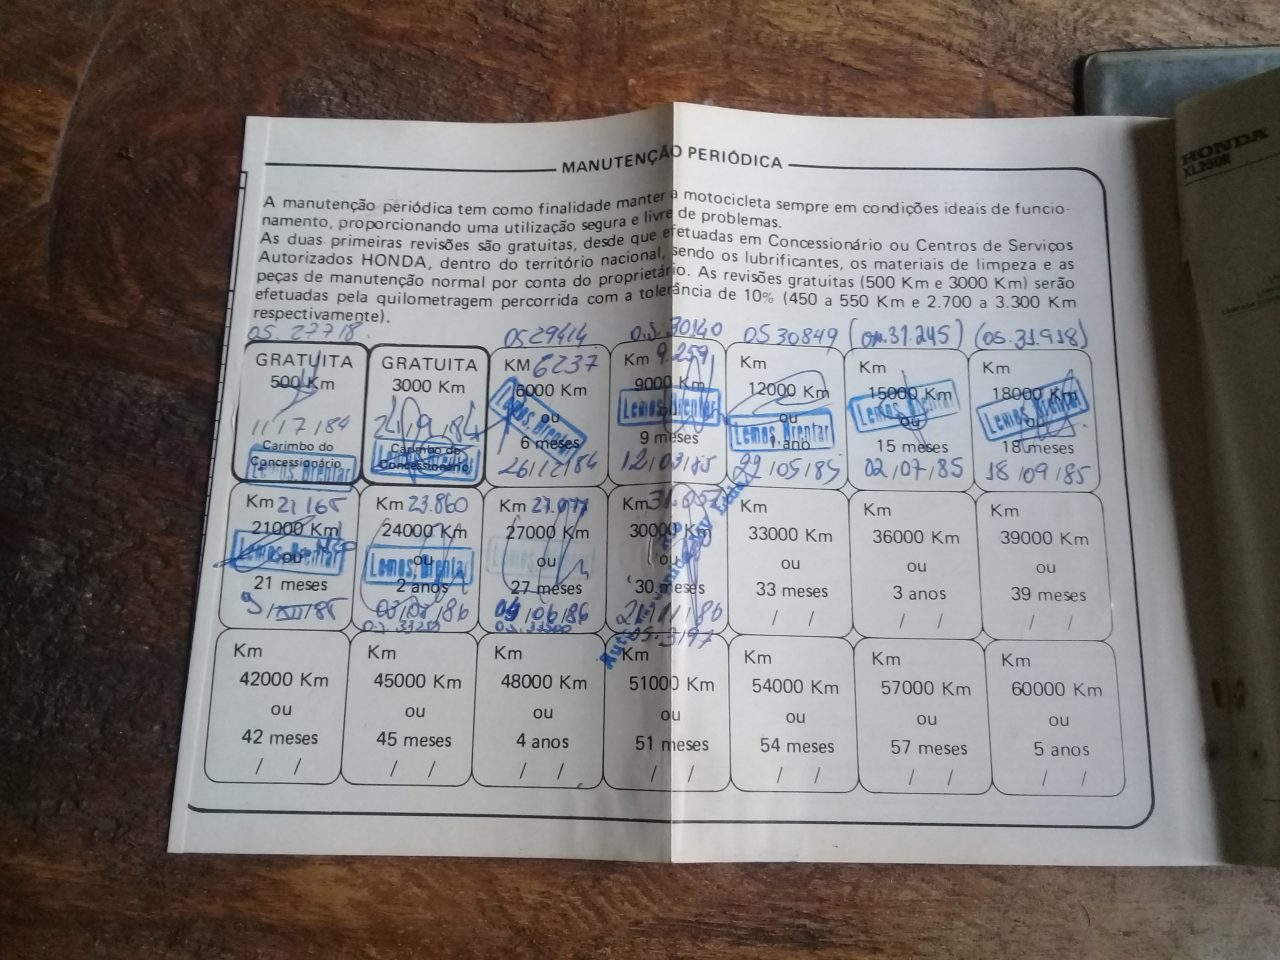 MANUTENÇÃO PERIÓDICA
HONDA
XL250R
A manutenção periódica tem como finalidade manter a motocicleta sempre em condições ideais de funcio-
namento, proporcionando uma utilização segura e livre de problemas.
As duas primeiras revisões são gratuitas, desde que efetuadas em Concessionário ou Centros de Serviços
Autorizados HONDA, dentro do território nacional, sendo os lubrificantes, os materiais de limpeza e as
peças de manutenção normal por conta do proprietário. As revisões gratuitas (500 Km e 3000 Km) serão
efetuadas pela quilometragem percorrida com a tolerância de 10% (450 a 550 Km e 2.700 a 3.300 Km
respectivamente).
OS. 27718. OS29414 O.S. 30140 OS 30849 31.245) (OS.31.918)
GRATUITA
500 Km
11/7/84
Carimbo do
Concessionário
Lemos, Brentar
GRATUITA
3000 Km
/9/84
Carimbo do
Concessionário
KM 6237
6000 Km
ou
6 meses
Lemos, Brentar
26/12/84
Km 9.259
9000 Km
9 meses
Lemos, Brentar
12/03/85
Km
12000 Km
ou
1 ano
Lemos, Brentar
/05/85
Km
15000 Km
ou
15 meses
Lemos, Brentar
02/07/85
Km
18000 Km
ou
18 meses
Lemos, Brentar
18/09/85
Km 21165
21000 Km
ou
21 meses
Lemos, Brentar
9/ /85
Km 23.860
24000 Km
ou
2 anos
Lemos, Brentar
03/ /86
Km 27.077
27000 Km
ou
27 meses
/06/86
Km 31.057
30000 Km
ou
30 meses
/11/86
OS.3197
Km
33000 Km
ou
33 meses
/ /
Km
36000 Km
ou
3 anos
/ /
Km
39000 Km
ou
39 meses
/ /
Km
42000 Km
ou
42 meses
/ /
Km
45000 Km
ou
45 meses
/ /
Km
48000 Km
ou
4 anos
/ /
Km
51000 Km
ou
51 meses
/ /
Km
54000 Km
ou
54 meses
/ /
Km
57000 Km
ou
57 meses
/ /
Km
60000 Km
ou
5 anos
/ /